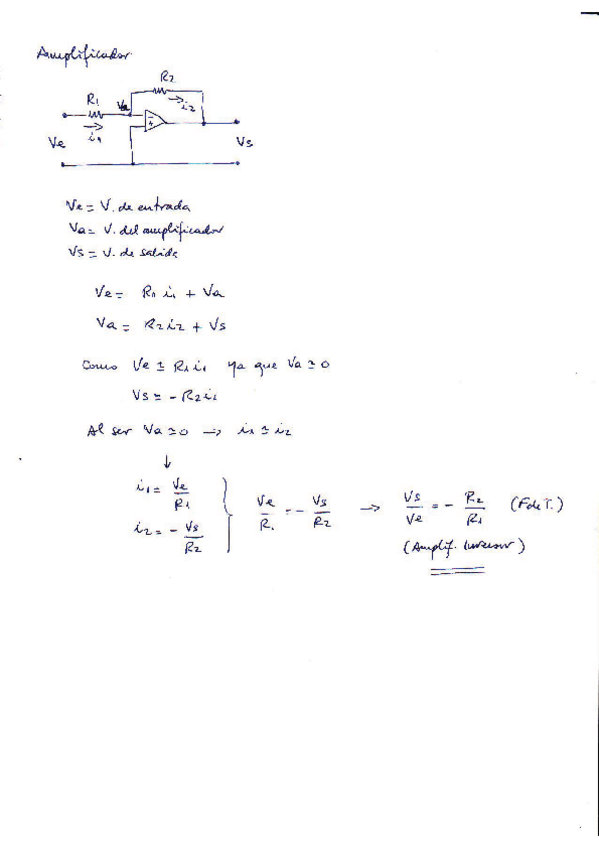 Amplificador
R2
R1 Va i2
i1
Ve Vs
Ve = V. de entrada
Va = V. del amplificador
Vs = V. de salida
Ve = R1 i1 + Va
Va = R2 i2 + Vs
Como Ve ≃ R1 i1 ya que Va ≃ 0
Vs ≃ - R2 i2
Al ser Va ≃ 0 → i1 ≃ i2
↓
i1 = Ve/R1
i2 = - Vs/R2
Ve/R1 = - Vs/R2 → Vs/Ve = - R2/R1 (F de T.)
(Amplif. Inversor)